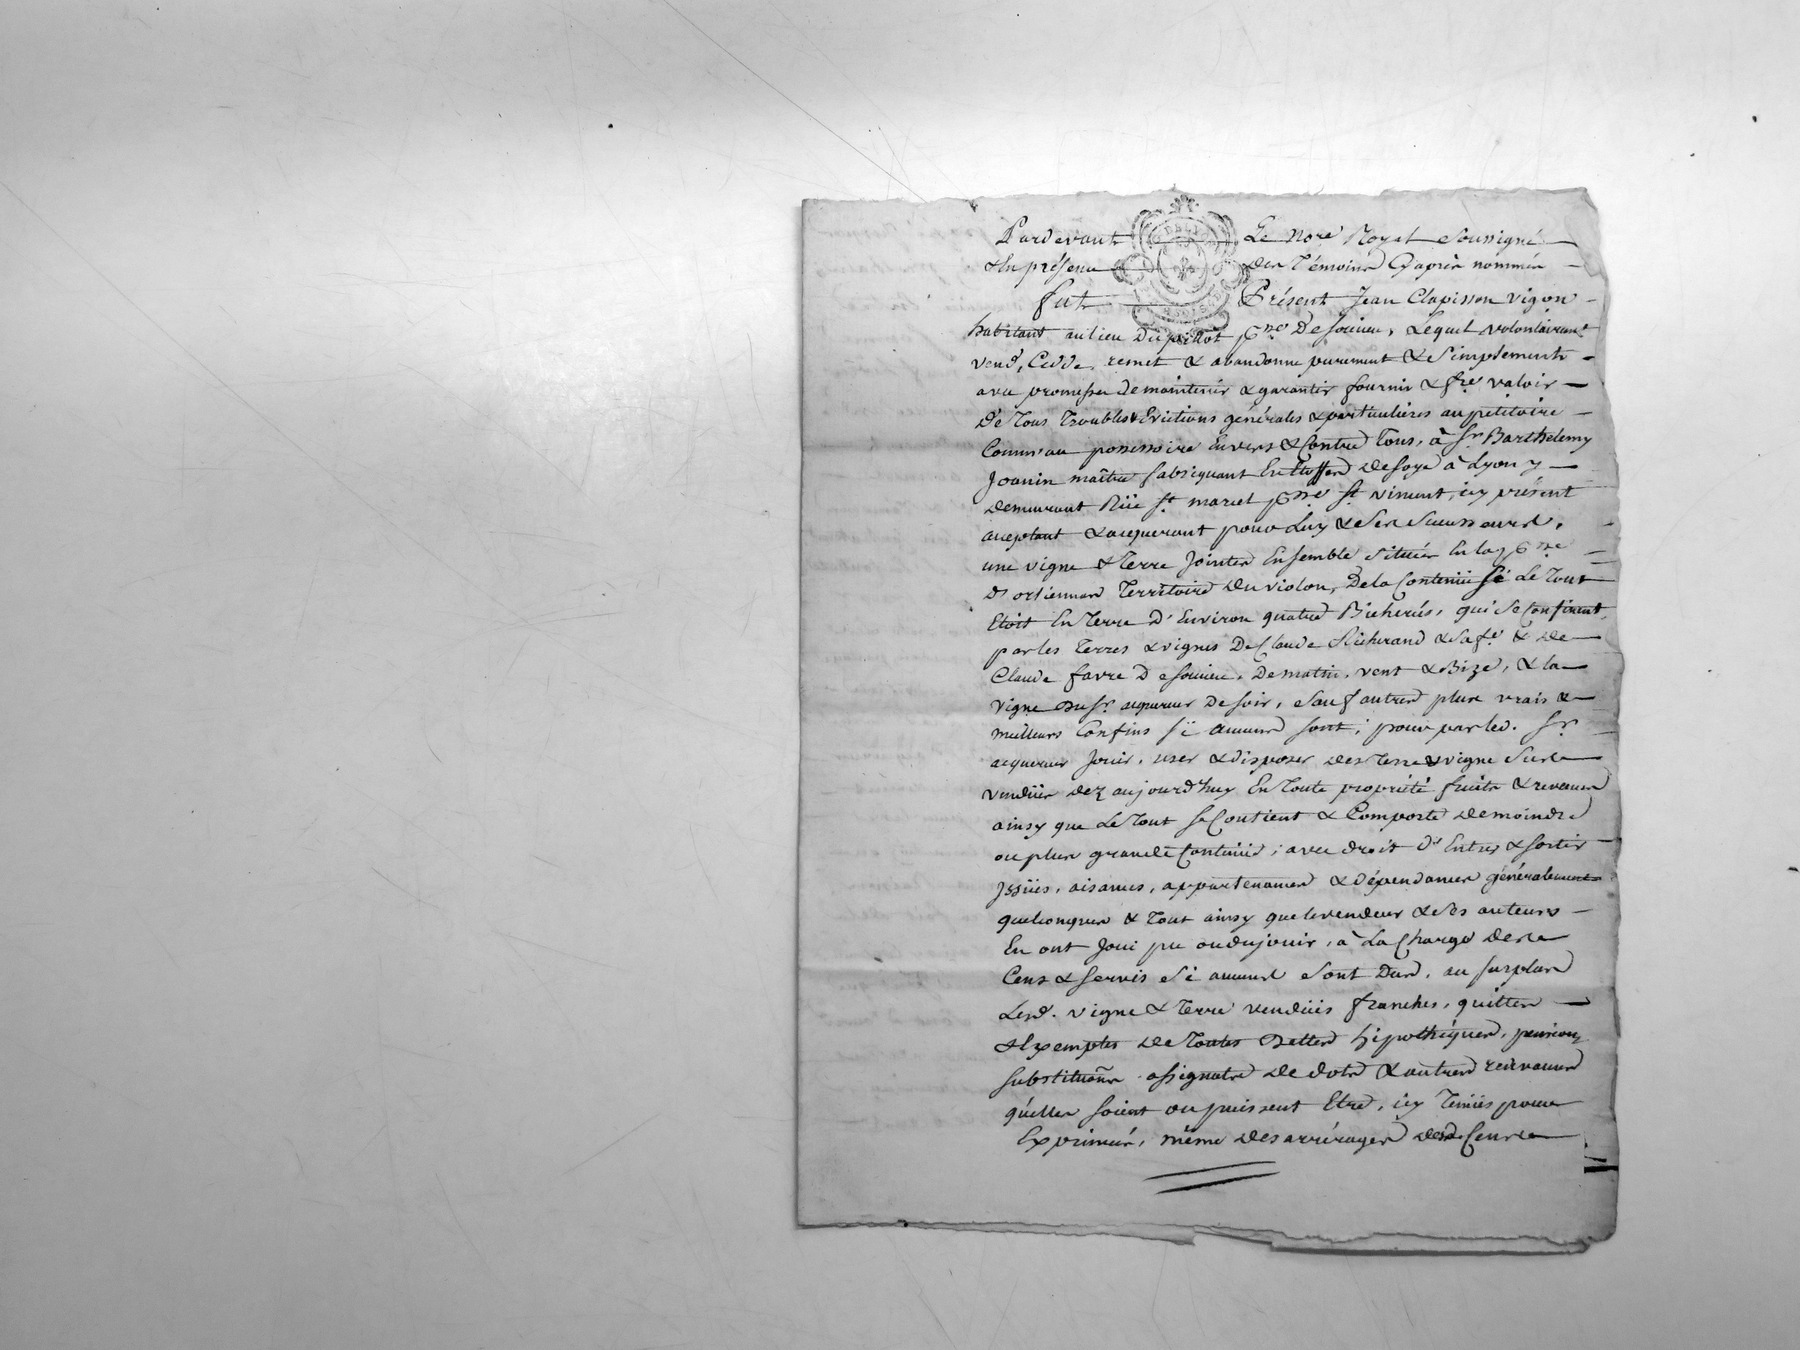 Pardevant Le Nore Royal Soussigné
& En présence des Témoins Cy après nommés
fut Présent Jean Clapisson vigon
habitant au lieu du pillot psse De soucieu, Lequel volontairemt
vend, Cedde, remet & abandonne purement & Simplement
avec promesse de maintenir & garantir fournir & fre valoir
De Tous Troubles & Evictions générales & particulières au pétitoire
Comm'au possessoire Envers & Contre Tous, à Sr Barthelemy
Joanin maître fabriquant En Etoffes de soye à Lyon y
demeurant Rüe St marcel psse St vincent, icy présent
acceptant & acquerant pour Luy & Ses Successeurs,
une vigne & Terre Jointes Ensemble Situées En la psse
D'orliennas Territoire du violon, De la Contenüe Si Le Tout
Etoit En Terre D'Environ quatre Bicherées, qui Se Confinent
par les Terres & vignes De Claude Richerand & Sa fe & de
Claude favre De soucieu, De matin, vent & Bize, & la
vigne du Sr acquereur De soir, Sauf autres plus vrais &
meilleurs Confins Si aucuns sont; pour par led. Sr
acquereur Jouir, user & disposer des Terre & vigne Sus
vendües dez aujourd'huy En Toute propriété fruits & revenus
ainsy que Le Tout Se Contient & Comporte de moindre
ou plus grande Contenüe; avec droit d'Entrer & Sortir
Issües, aisances, appartenances & dépendances généralement
quelconques & Tout ainsy que le vendeur & Ses auteurs
En ont Joui pu ou du jouir, à La Charge des
Cens & Servis Si aucuns Sont Dus, au surplus
Lesd. vigne & Terre vendües franches, quittes
& Exemptes de Toutes Dettes hipothéques, pensions
substituõns assignats de dots & autres redevances
qu'elles soient ou puissent Etre, icy Tenües pour
Exprimées, même des arrérages desd Cens